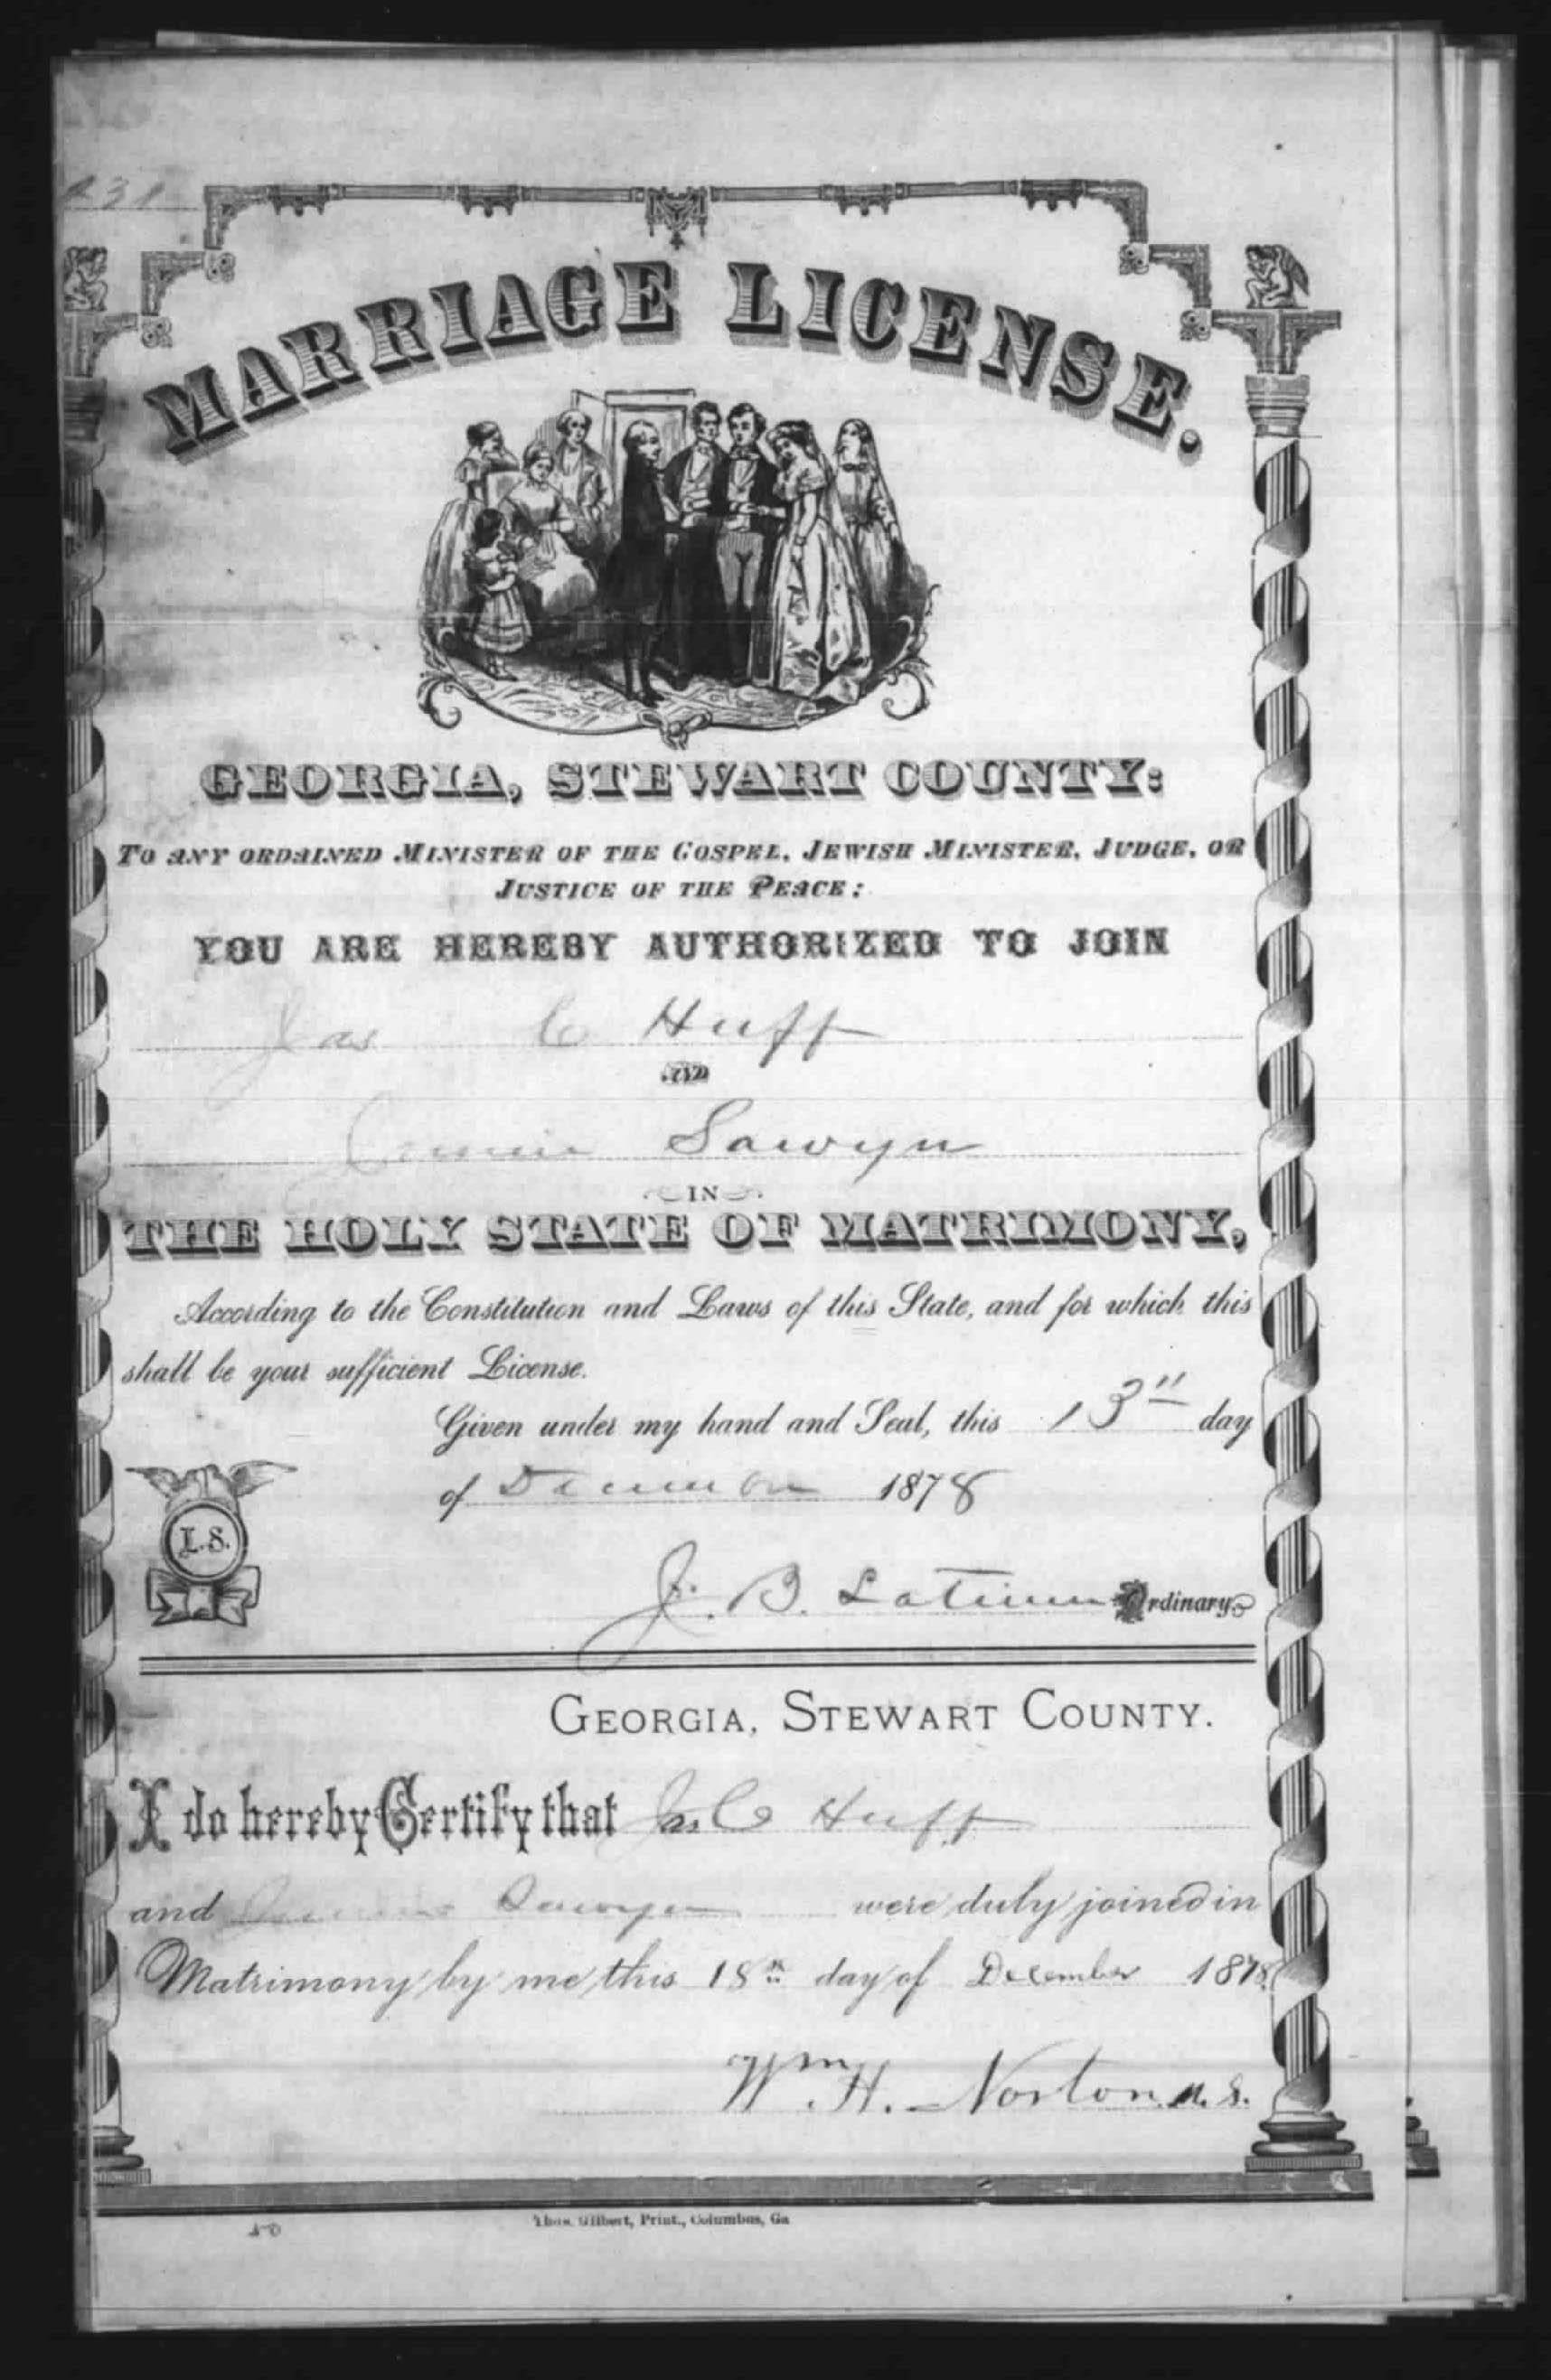 231
MARRIAGE LICENSE.
GEORGIA, STEWART COUNTY:
TO ANY ORDAINED MINISTER OF THE GOSPEL, JEWISH MINISTER, JUDGE, OR
JUSTICE OF THE PEACE:
YOU ARE HEREBY AUTHORIZED TO JOIN
Jas C Huff
AND
Sawyer
IN
THE HOLY STATE OF MATRIMONY,
According to the Constitution and Laws of this State, and for which this
shall be your sufficient License.
Given under my hand and Seal, this 13" day
of December 1878
L.S.
J. B. Latimer Ordinary
GEORGIA, STEWART COUNTY.
I do hereby Certify that Jas C Huff
and Sawyer were duly joined in
Matrimony by me this 18th day of December 1878
Wm H. Norton M. G.
Thos. Gilbert, Print., Columbus, Ga